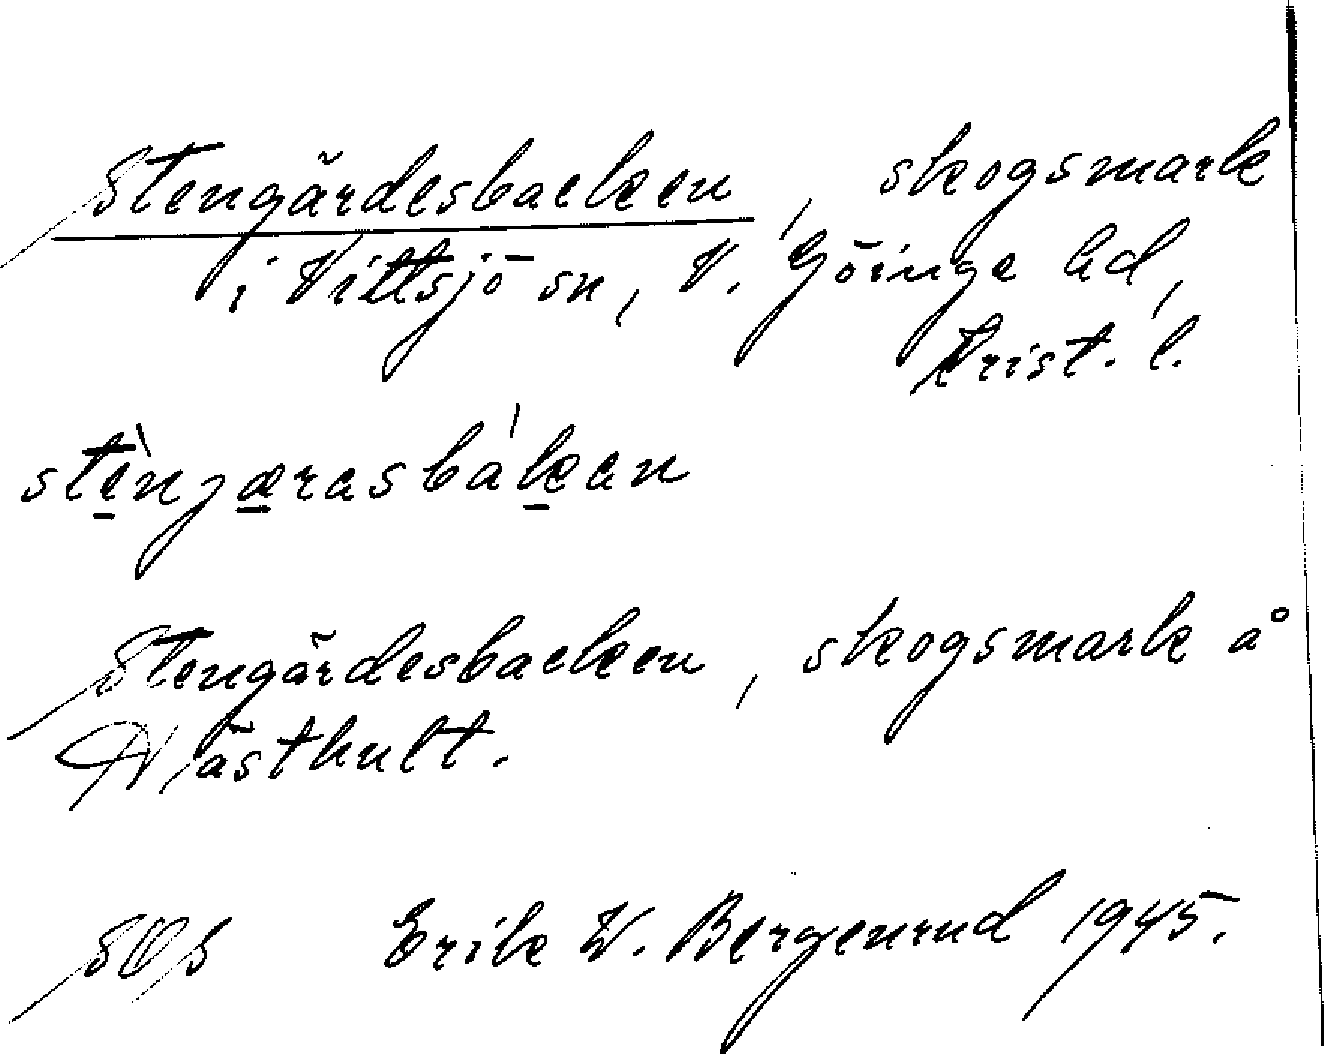 Stengärdesbacken, skogsmark
i Vittsjö sn, V. Göinge hd,
Krist. l.
stènjærasbákan
Stengärdesbacken, skogsmark å
Hästhult.
SOS Erik W. Bergenrud 1945.